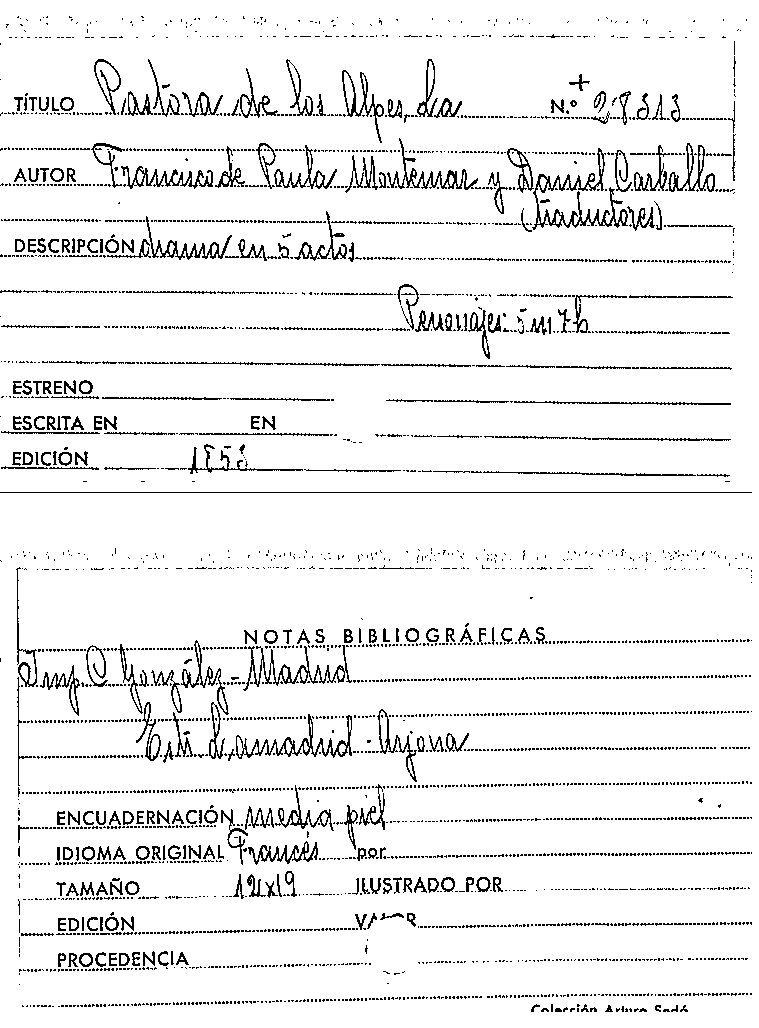 TÍTULO Pastora de los Alpes, La N.º 28313
AUTOR Francisco de Paula Montemar y Daniel Carballo
(traductores)
DESCRIPCIÓN drama en 5 actos
Personajes: 5 m 7 h
ESTRENO
ESCRITA EN EN
EDICIÓN 1853
NOTAS BIBLIOGRÁFICAS
Imp. C. González - Madrid
Lamadrid - Arjona
ENCUADERNACIÓN media piel
IDIOMA ORIGINAL Francés por
TAMAÑO 12x19 ILUSTRADO POR
EDICIÓN VALOR
PROCEDENCIA
Colección Arturo Sedó